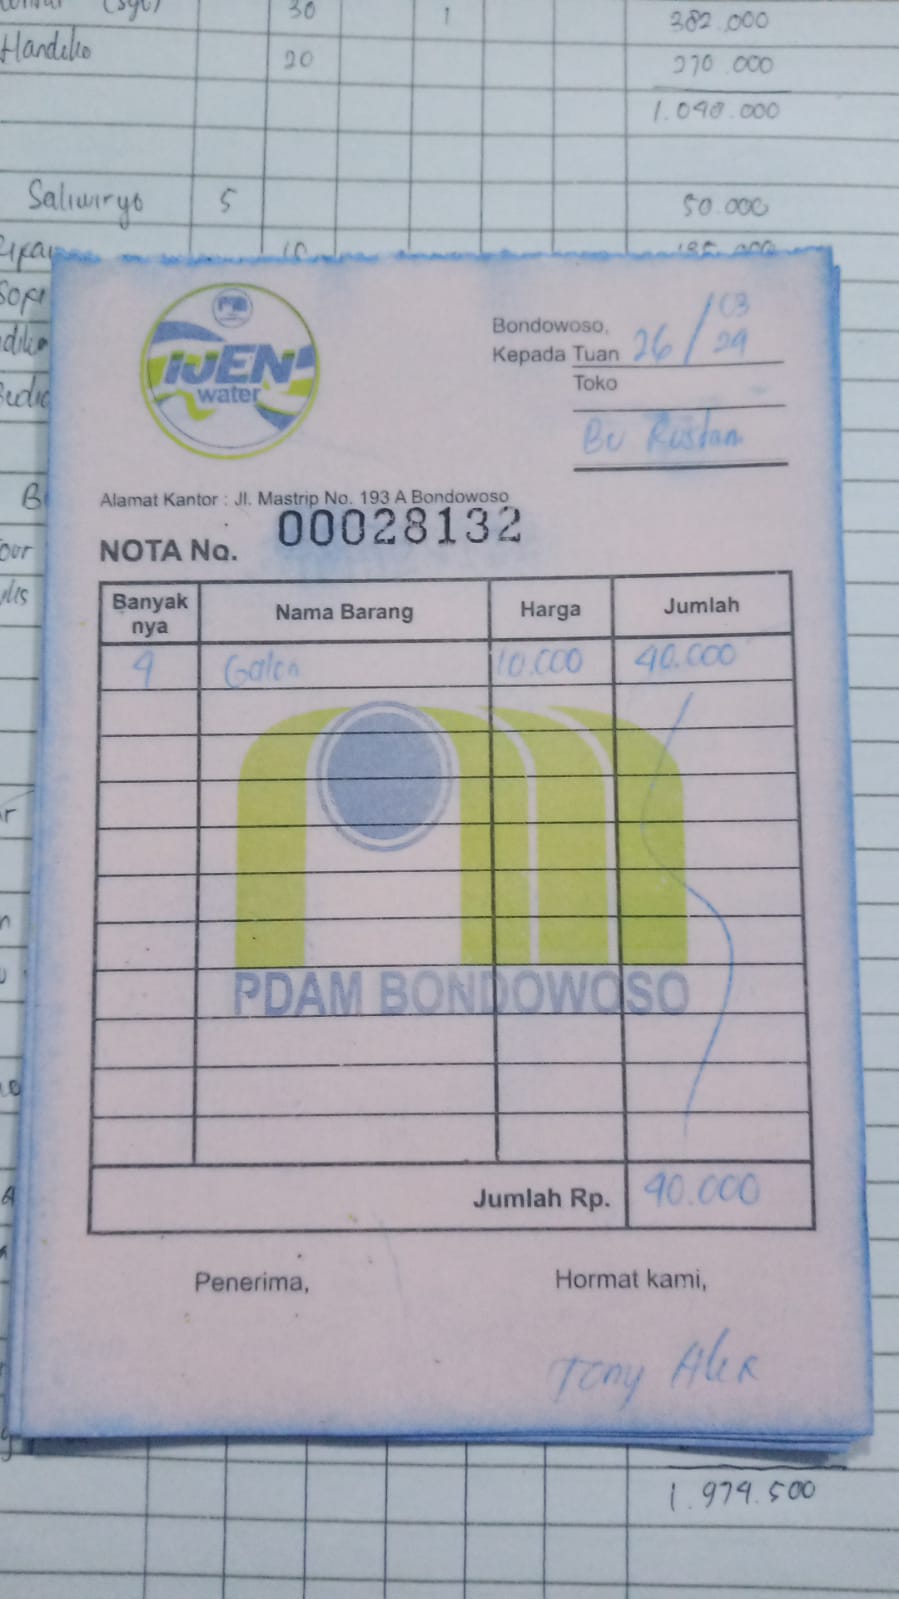 (sgt)
30
1
382.000
Handiko
20
270.000
1.090.000
Saliwiryo
5
50.000
10
IJEN
water
Bondowoso,
Kepada Tuan
26/03
24
Toko
Bu Rustan
Alamat Kantor : Jl. Mastrip No. 193 A Bondowoso
NOTA No. 00028132
Banyak nya
Nama Barang
Harga
Jumlah
4
Galon
10.000
40.000
PDAM BONDOWOSO
Jumlah Rp.
40.000
Penerima,
Hormat kami,
Tony Alex
1.979.500